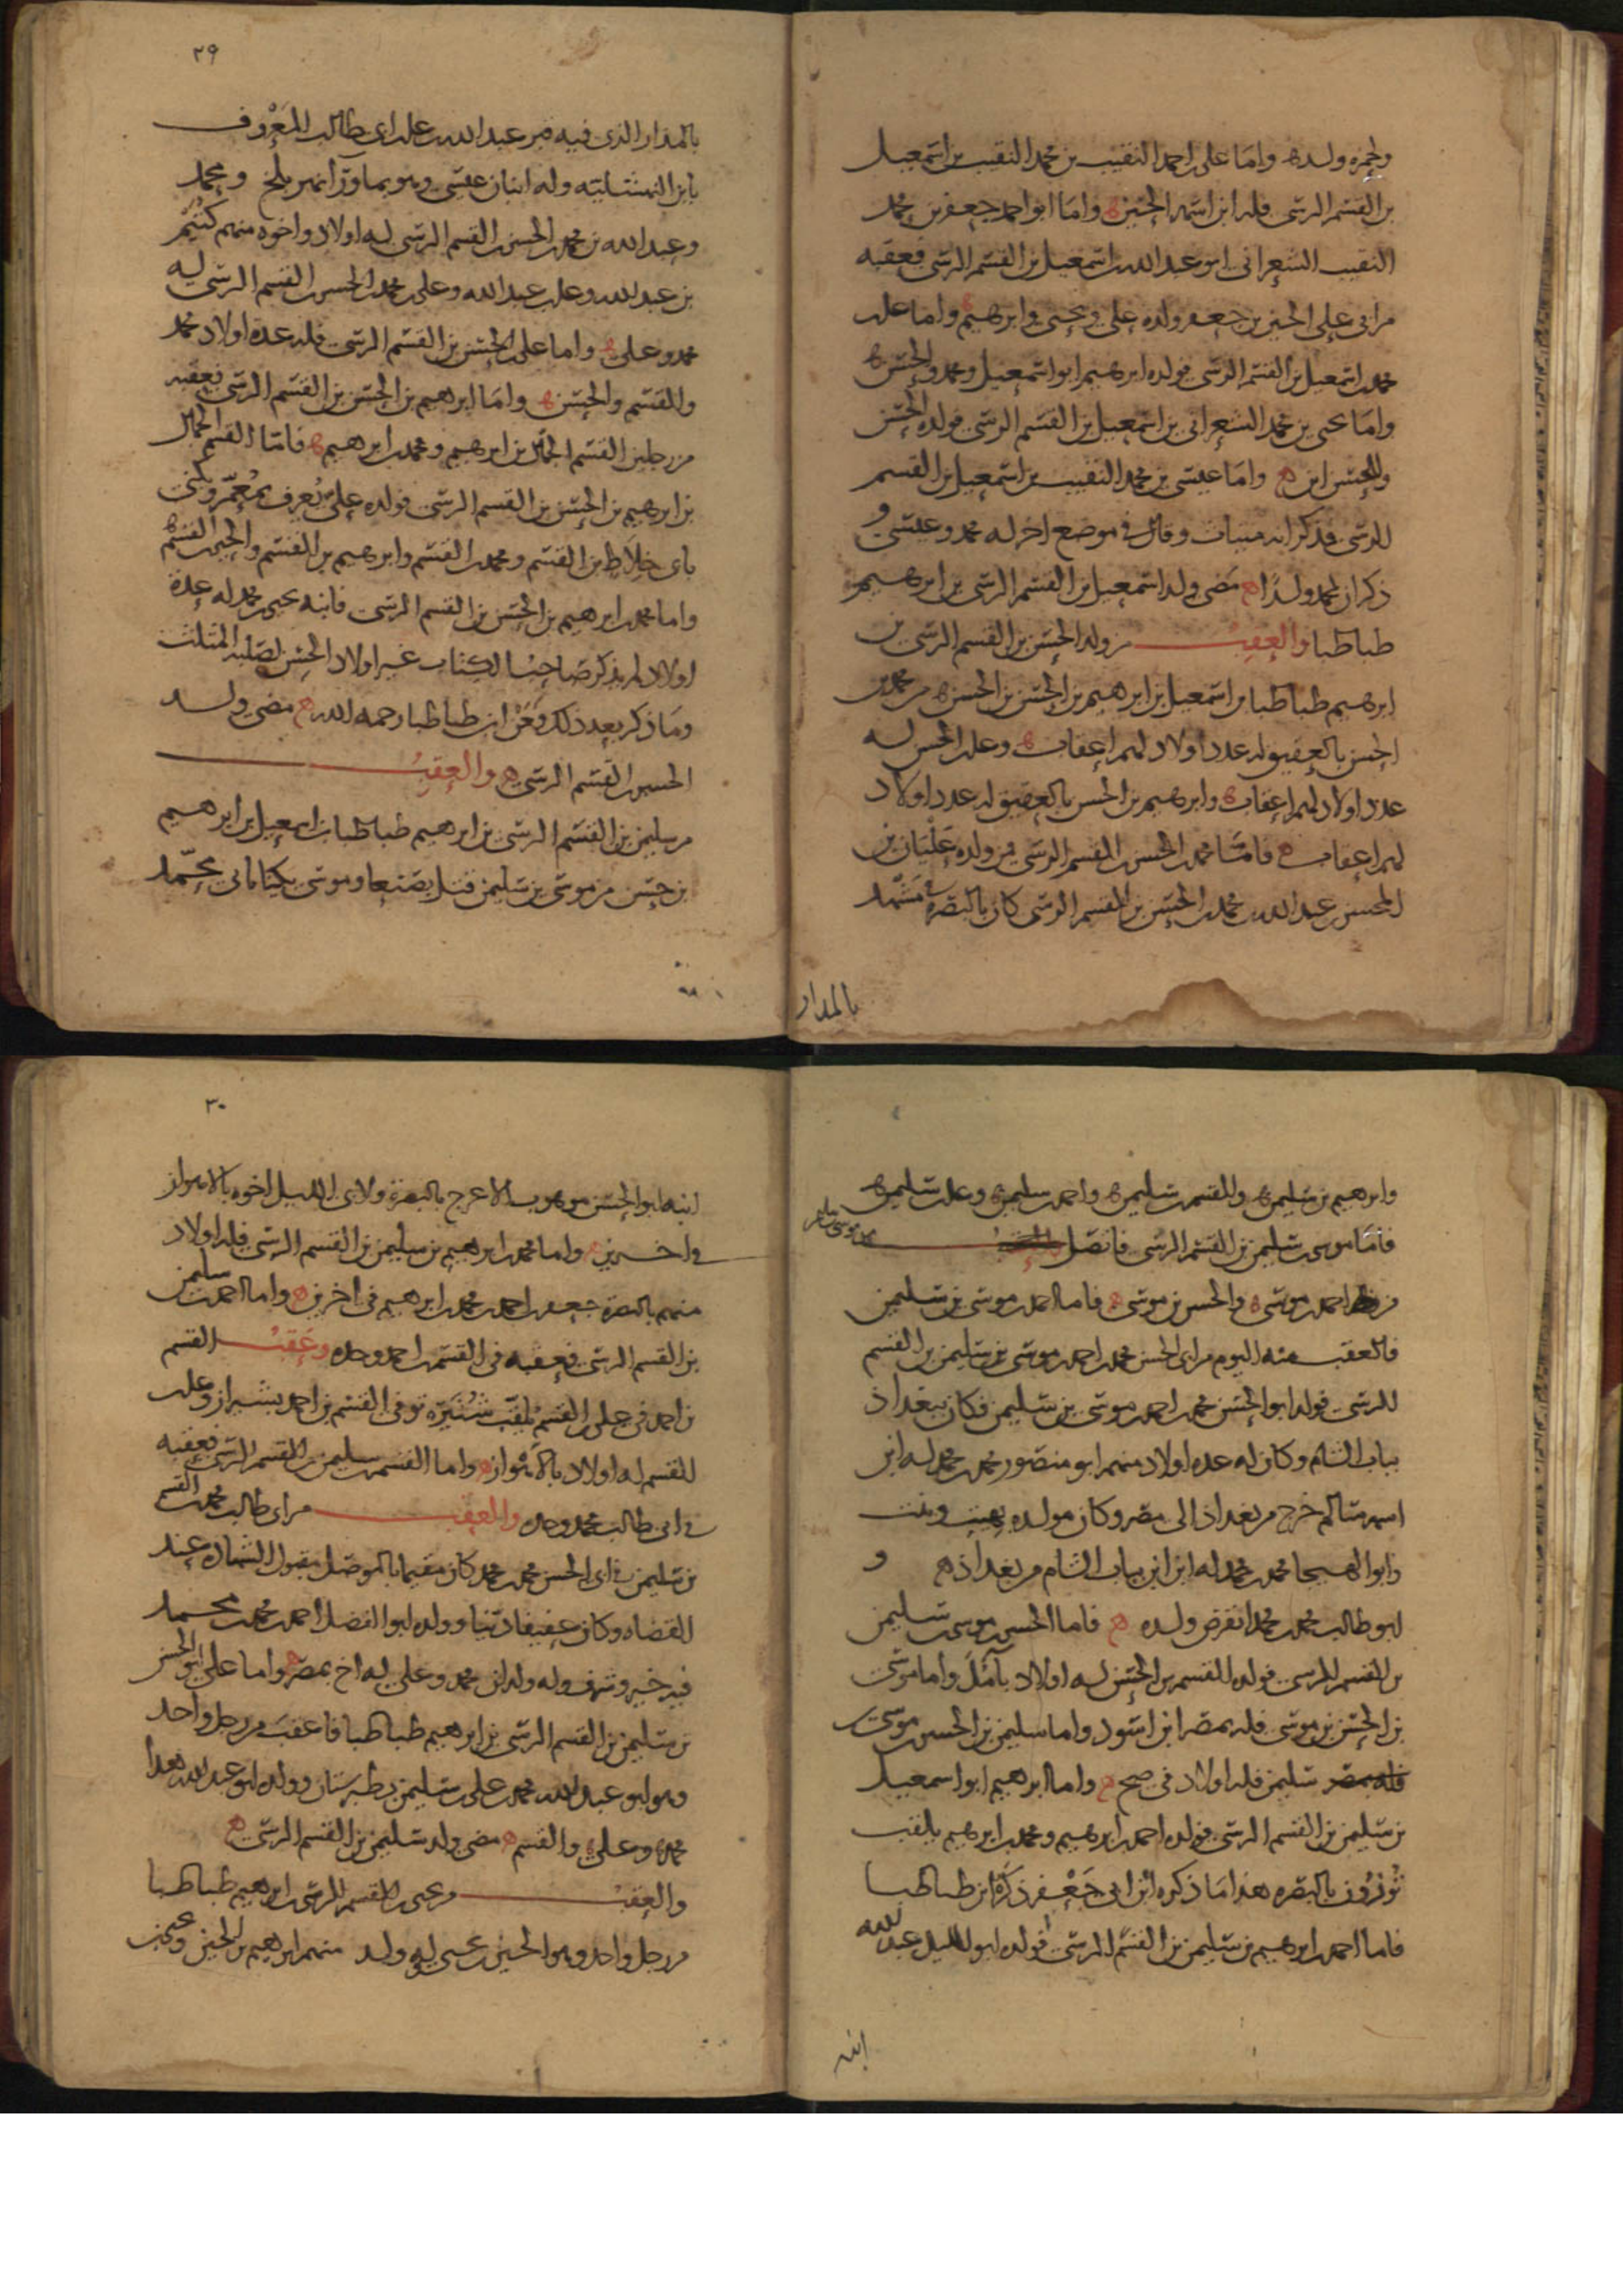 ولحمزه ولده واما على احمد النقيب بن محمد النقيب بن اسمعيل
بن القسم الرسى فله ابن اسمه الحسين ه واما ابو احمد جعفر بن محمد
النقيب الشعرانى ابو عبد الله بن اسمعيل بن القسم الرسى فعقبه
من ابى على الحسين بن جعفر ولده على ويحيى وابرهيم ه واما على بن
محمد بن اسمعيل بن القسم الرسى فولده ابرهيم ابو اسمعيل ومحمد والحسن ه
واما يحيى بن محمد الشعرانى بن اسمعيل بن القسم الرسى فولده الحسن
وللحسن ابن ه واما عيسى بن محمد النقيب بن اسمعيل بن القسم
الرسى فذكر انه ميناث وقال فى موضع اخر له محمد وعيسى و
ذكر ان لمحمد ولدًا ه مضى ولد اسمعيل بن القسم الرسى بن ابرهيم
طباطبا والعقب من ولد الحسن بن القسم الرسى بن
ابرهيم طباطبا بن اسمعيل بن ابرهيم بن الحسن بن الحسن ه من محمد بن
الحسن بالعقيق له عدد اولاد لهم اعقاب ه وعلى بن الحسن له
عدد اولاد لهم اعقاب ه وابرهيم بن الحسن بالعقيق له عدد اولاد
لهم اعقاب ه فاما محمد بن الحسن بن القسم الرسى فمن ولده عليان بن
المحسن بن عبد الله بن محمد بن الحسن بن القسم الرسى كان بالبصره فى مشهد
بالمدار
٢٩
بالمدار الذى فيه قبر عبد الله بن على بن ابى طالب المعروف
بابن النهشليه وله ابنان عيسى وهو بما ورا نهر بلخ ومحمد
وعبد الله بن محمد بن الحسن بن القسم الرسى له اولاد واخوه منهم كثير
بن عبد الله وعلى بن عبد الله وعلى بن محمد بن الحسن بن القسم الرسى له
محمد وعلى ه واما على بن الحسن بن القسم الرسى فله عده اولاد محمد
والقسم والحسن ه واما ابرهيم بن الحسن بن القسم الرسى فعقبه
من رجلين القسم الجمال بن ابرهيم ومحمد بن ابرهيم ه فاما القسم الجمال
بن ابرهيم بن الحسن بن القسم الرسى فولده على يعرف بمعمر ويكنى
بابى خلاط بن القسم ومحمد بن القسم وابرهيم بن القسم والحسن بن القسم ه
واما محمد بن ابرهيم بن الحسن بن القسم الرسى فابنه يحيى بن محمد له عدة
اولاد لم يذكر صاحب الكتاب غير اولاد الحسن لصلبه الثلث
وما ذكر بعد ذلك فعن ابن طباطبا رحمه الله ه مضى ولد
الحسن بن القسم الرسى ه والعقب
من سليمن بن القسم الرسى بن ابرهيم طباطبا بن اسمعيل بن ابرهيم
بن حسن من موسى بن سليمن قتل بصنعا وموسى يكنا بابى محمد
وابرهيم بن سليمن ه والقسم بن سليمن ه واحمد بن سليمن ه وعلى بن سليمن ه
فاما موسى بن سليمن بن القسم الرسى فاتصل
من احمد بن موسى ه والحسن بن موسى ه فاما احمد بن موسى بن سليمن
فالعقب منه اليوم من ابى الحسن محمد بن احمد بن موسى بن سليمن بن القسم
الرسى فولد ابو الحسن محمد بن احمد بن موسى بن سليمن فكان ببغداذ
بباب الشام وكان له عده اولاد منهم ابو منصور محمد بن محمد له ابن
اسمه سالم خرج من بغداذ الى مصر وكان مولده بهيت وبنت
وابو الهيجا محمد بن محمد له ابن ابن بباب الشام من بغداذ ه و
ابو طالب محمد بن محمد انقرض ولده ه فاما الحسن بن موسى بن سليمن
بن القسم الرسى فولده القسم بن الحسن له اولاد بآمل واما موسى
بن الحسن بن موسى فله بمصر ابن اسود واما سليمن بن الحسن بن موسى بن
سليمن فله اولاد فى صح ه واما ابرهيم ابو اسمعيل
بن سليمن بن القسم الرسى فولده احمد بن ابرهيم ومحمد بن ابرهيم يلقب
توزون بالبصره هذا ما ذكره ابن ابى جعفر ذكره ابن طباطبا
فاما احمد بن ابرهيم بن سليمن بن القسم الرسى فولده ابو الليل عبد الله
ابنه
٣٠
ابنه ابو الحسن موهوب الاعرج بالبصرة ولابى الليل اخوه بالاهواز
واخرين واما محمد بن ابرهيم بن سليمن بن القسم الرسى فله اولاد
منهم بالبصره جعفر بن احمد بن محمد بن ابرهيم فى اخرين ه واما احمد بن سليمن
بن القسم الرسى فعقبه فى القسم بن احمد وحده وعقب القسم
بن احمد فى على بن القسم يلقب توفى القسم بن احمد بشيراز وعلى بن
القسم له اولاد بالاهواز ه واما القسم بن سليمن بن القسم الرسى فعقبه
فى ابى طالب محمد وحده والعقب من ابى طالب محمد بن القسم
بن سليمن فى ابى الحسن محمد بن محمد كان مقيما بالموصل مقبول الشهاده عند
القضاه وكان عفيفا دينا وولده ابو الفضل احمد بن محمد بن محمد
فيه خير وشرف وله ولدان محمد وعلى له اخ بمصر ه واما على ابو الحسن
بن سليمن بن القسم الرسى بن ابرهيم طباطبا فاعقب من رجل واحد
وهو ابو عبد الله محمد بن على بن سليمن بطبرستان وولد ابو عبد الله هذا
محمد وعلى ه والقسم ه مضى ولد سليمن بن القسم الرسى ه
والعقب من يحيى بن القسم الرسى بن ابرهيم طباطبا
من رجل واحد وهو الحسين بن يحيى له ولد منهم ابرهيم بن الحسين ويحيى بن